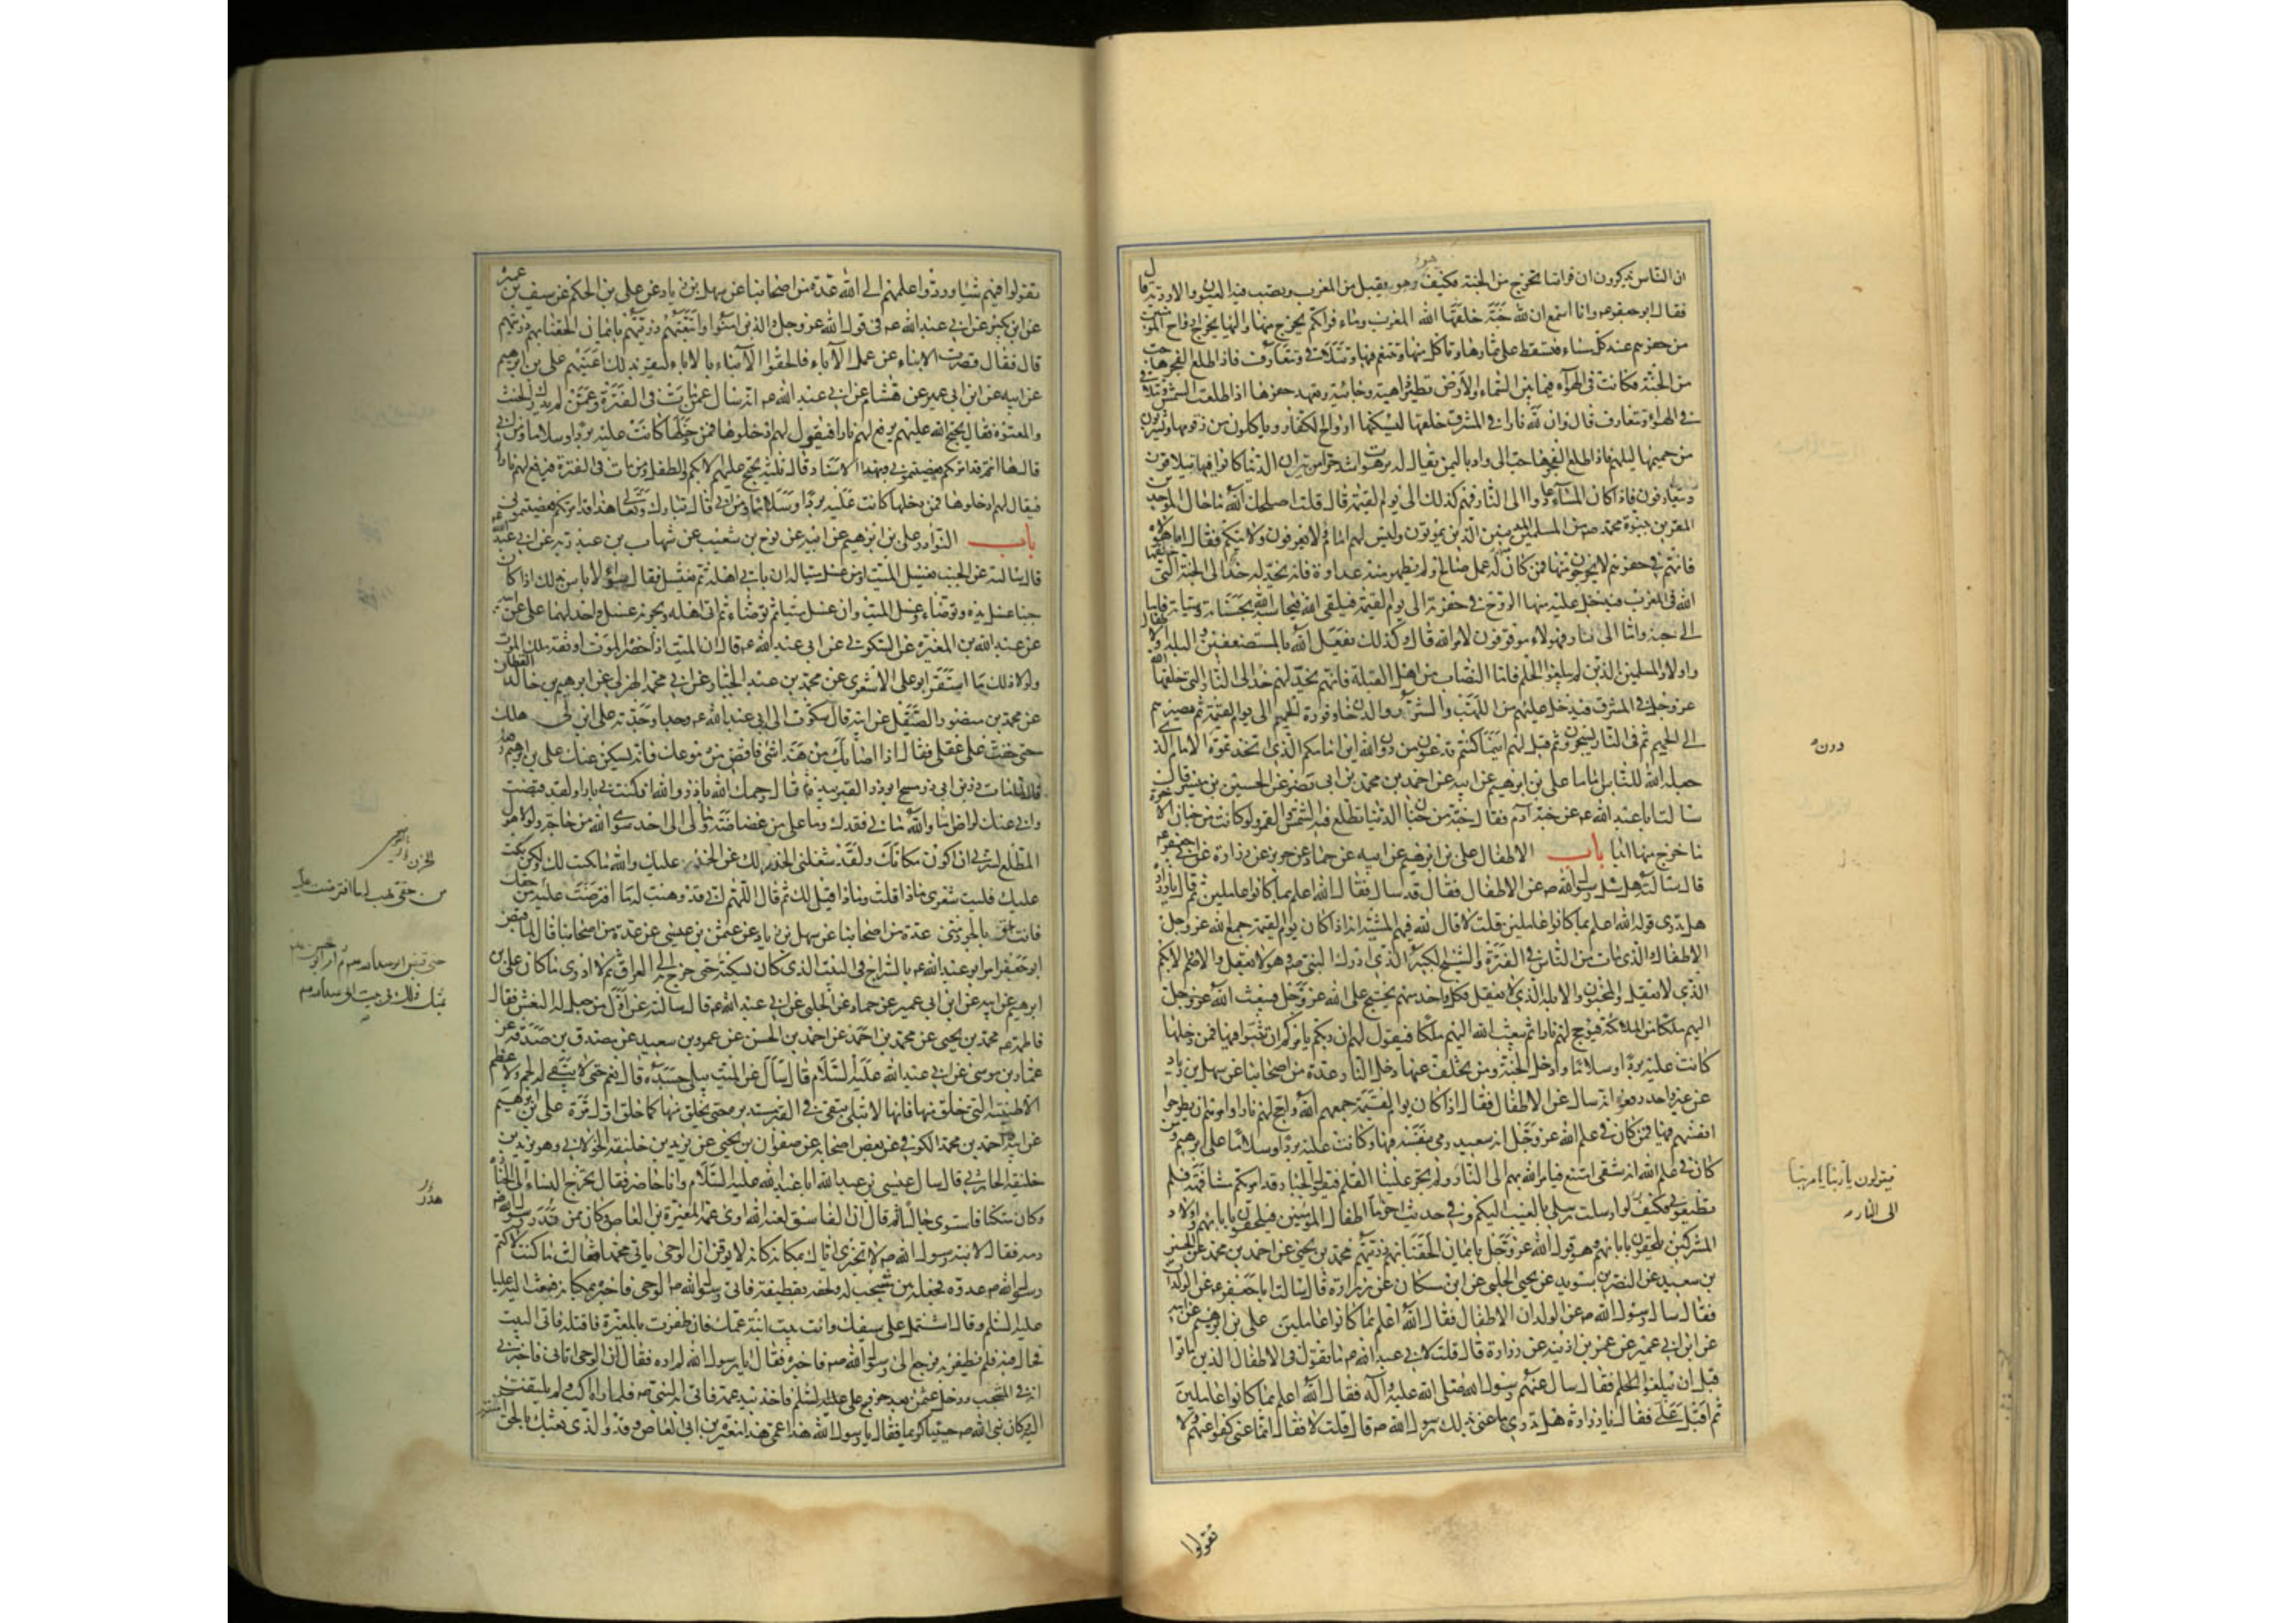 ان الناس يذكرون ان فراتنا يخرج من الجنة فكيف هو وهو يقبل من المغرب ويصب فيه العيون والاودية قال
فقال ابو جعفر عه وانا اسمع ان لله جنة خلقها الله المغرب وماء فراتكم يخرج منها واليها يخرج ارواح المؤمنين
من حفرهم عند كل مساء فتسقط على ثمارها وتاكل منها وتتنعم فيها وتتلاقى وتتعارف فاذا طلع الفجر هاجت
من الجنة فكانت فى الهواء فيما بين السماء والارض تطير ذاهبة وجائية وتعهد حفرها اذا طلعت الشمس وتتلاقى
فى الهواء وتتعارف قال وان لله نارا فى المشرق خلقها ليسكنها ارواح الكفار وياكلون من زقومها ويشربون
من حميمها ليلهم فاذا طلع الفجر هاجت الى واد باليمن يقال له برهوت اشد حرا من نيران الدنيا كانوا فيها يتلاقون
ويتعارفون فاذا كان المساء عادوا الى النار فهم كذلك الى يوم القيمة قال قلت اصلحك الله ما حال الموحدين
المقرين بنبوة محمد صه من المسلمين المذنبين الذين يموتون وليس لهم امام ولا يعرفون ولايتكم فقال اما هؤلاء
فانهم فى حفرتهم لا يخرجون منها فمن كان له عمل صالح ولم يظهر منه عداوة فانه يخد له خدا الى الجنة التى خلقها
الله فى المغرب فيدخل عليه منها الروح فى حفرته الى يوم القيمة فيلقى الله فيحاسبه بحسناته وسيئاته فاما
الى جنة واما الى نار فهؤلاء موقوفون لامر الله قال وكذلك يفعل الله بالمستضعفين والبله والاطفال
واولاد المسلمين الذين لم يبلغوا الحلم فاما النصاب من اهل القبلة فانهم يخد لهم خدا الى النار التى خلقها الله
عز وجل فى المشرق فيدخل عليهم منها اللهب والشرر والدخان وفورة الحميم الى يوم القيمة ثم مصيرهم
الى الحميم ثم فى النار يسجرون ثم قيل لهم اينما كنتم تدعون من دون الله اين امامكم الذى اتخذتموه الامام الذى
جعله الله للناس اماما على بن ابرهيم عن ابيه عن احمد بن محمد بن ابى نصر عن الحسين بن ميسر قال
سالت ابا عبد الله عه عن جنة آدم فقال جنة من جنان الدنيا تطلع فيه الشمس والقمر ولو كانت من جنان الاخرة
ما خرج منها ابدا باب الاطفال على بن ابرهيم عن ابيه عن حماد عن حريز عن زرارة عن ابى جعفر عه
قال سالته هل سئل رسول الله صه عن الاطفال فقال قد سئل فقال الله اعلم بما كانوا عاملين ثم قال يا زرارة
هل تدرى قوله الله اعلم بما كانوا عاملين قلت لا قال لله فيهم المشية انه اذا كان يوم القيمة جمع الله عز وجل
الاطفال والذى مات من الناس فى الفترة والشيخ الكبير الذى ادرك النبى صه وهو لا يعقل والاصم والابكم
الذى لا يعقل والمجنون والابله الذى لا يعقل فكل واحد منهم يحتج على الله عز وجل فيبعث الله عز وجل
اليهم ملكا من الملائكة فيؤجج لهم نارا ثم يبعث الله اليهم ملكا فيقول لهم ان ربكم يامركم ان تثبوا فيها فمن دخلها
كانت عليه بردا وسلاما وادخل الجنة ومن تخلف عنها دخل النار عدة من اصحابنا عن سهل بن زياد
عن غير واحد رفعوه انه سئل عن الاطفال فقال اذا كان يوم القيمة جمعهم الله واجج لهم نارا وامرهم ان يطرحوا
انفسهم فيها فمن كان فى علم الله عز وجل انه سعيد رمى بنفسه فيها وكانت عليه بردا وسلاما ومن
كان فى علم الله انه شقى امتنع فيامر الله بهم الى النار ولم يجر علينا القلم فيقول الجبار قد امرتكم مشافهة فلم
تطيعونى فكيف لو ارسلت رسلى بالغيب اليكم وفى حديث اخر اما اطفال المؤمنين فيلحقون بابائهم واولاد
المشركين يلحقون بابائهم وهو قول الله عز وجل بايمان الحقنا بهم ذريتهم محمد بن يحيى عن احمد بن محمد عن الحسين
بن سعيد عن النضر بن سويد عن يحيى الحلبى عن ابن مسكان عن زرارة قال سالت ابا جعفر عه عن الولدان
فقال سئل رسول الله صه عن الولدان الاطفال فقال الله اعلم بما كانوا عاملين على بن ابرهيم عن ابيه
عن ابن ابى عمير عن عمر بن اذينه عن زرارة قال قلت لابى عبد الله عه ما تقول فى الاطفال الذين ماتوا
قبل ان يبلغوا الحلم فقال سئل عنهم رسول الله صلى الله عليه وآله فقال الله اعلم بما كانوا عاملين
ثم اقبل على فقال يا زرارة هل تدرى ما عنى بذلك رسول الله صه قال قلت لا فقال انما عنى كفوا عنهم ولا
دون
فيقولون يا ربنا تامر بنا
الى النار
تقولوا
تقولوا فيهم شيئا وردوا علمهم الى الله عدة من اصحابنا عن سهل بن زياد عن على بن الحكم عن سيف بن عميرة
عن ابن بكير عن ابى عبد الله عه فى قول الله عز وجل والذين آمنوا واتبعتهم ذريتهم بايمان الحقنا بهم ذريتهم
قال فقال قصرت الابناء عن عمل الآباء فالحقوا الابناء بالاباء ليقر بذلك اعينهم على بن ابرهيم
عن ابيه عن ابن ابى عمير عن هشام عن ابى عبد الله عه انه سئل عمن مات فى الفترة وعمن لم يدرك الحنث
والمعتوه فقال يحتج الله عليهم يرفع لهم نارا فيقول لهم ادخلوها فمن دخلها كانت عليه بردا وسلاما ومن ابى
قال ها انتم قد امرتكم فعصيتمونى وبهذا الاسناد قال ثلثة يحتج عليهم الابكم والطفل ومن مات فى الفترة فيرفع لهم نارا
فيقال لهم ادخلوها فمن دخلها كانت عليه بردا وسلاما ومن ابى قال تبارك وتعالى هذا قد امرتكم فعصيتمونى
باب النوادر على بن ابرهيم عن ابيه عن نوح بن شعيب عن شهاب بن عبد ربه عن ابى عبد الله عه
قال سالته عن الجنب يغسل الميت او من غسل ميتا له ان ياتى اهله ثم يغتسل فقال سواء لا باس بذلك اذا كان
جنبا غسل يده وتوضاء وغسل الميت وان غسل ميتا ثم توضاء ثم اتى اهله ويجزيه غسل واحد لهما على عن ابيه
عن عبد الله بن المغيره عن السكونى عن ابى عبد الله عه قال ان الميت اذا حضره الموت اوثقه ملك الموت
ولولا ذلك ما استقر ابو على الاشعرى عن محمد بن عبد الجبار عن ابى محمد الهذلى عن ابرهيم بن خالد القطان
عن محمد بن منصور الصيقل عن ابيه قال شكوت الى ابى عبد الله عه وجدا وجدته على ابن لى هلك
حتى خفت على عقلى فقال اذا اصابك من هذا شئ فافض من دموعك فانه يسكن عنك على بن ابرهيم
قال لما مات ذر بن ابى ذر مسح ابو ذر القبر بيده ثم قال رحمك الله يا ذر والله ان كنت بى بارا ولقد قبضت
وانى عنك لراض اما والله ما بى فقدك وما على من غضاضة وما لى الى احد سوى الله من حاجة ولولا هول
المطلع لسرنى ان اكون مكانك ولقد شغلنى الحزن لك عن الحزن عليك والله ما بكيت لك ولكن بكيت
عليك فليت شعرى ماذا قلت وماذا قيل لك ثم قال اللهم انى قد وهبت له ما افترضت عليه من حقك
فانت احق بالجود منى عدة من اصحابنا عن سهل بن زياد عن عثمن بن عيسى عن عدة من اصحابنا قال لما قبض
ابو جعفر امر ابو عبد الله عه بالسراج فى البيت الذى كان يسكنه حتى خرج به الى العراق ثم لا ادرى ما كان على بن
ابرهيم عن ابيه عن ابن ابى عمير عن حماد عن الحلبى عن ابى عبد الله عه قال سالته عن اول من جعل له النعش فقال
فاطمة عه محمد بن يحيى عن محمد بن احمد عن احمد بن الحسن عن عمرو بن سعيد عن مصدق بن صدقة عن
عمار بن موسى عن ابى عبد الله عليه السلام قال سئل عن الميت يبلى جسده قال نعم حتى لا يبقى له لحم ولا عظم
الا طينته التى خلق منها فانها لا تبلى تبقى فى القبر مستديرة حتى يخلق منها كما خلق اول مرة على بن ابرهيم
عن ابيه احمد بن محمد الكوفى عن بعض اصحابه عن صفوان بن يحيى عن يزيد بن خليفة الخولانى وهو يزيد بن
خليفة الحارثى قال سال عيسى بن عبد الله ابا عبد الله عليه السلام وانا حاضر فقال تخرج النساء الى الجنازة
وكان متكئا فاستوى جالسا ثم قال ان الفاسق لعنه الله اوى عمه المغيرة بن العاص وكان ممن هدر رسول الله صه
دمه فقال لابنة رسول الله صه لا تخبرى اباك بمكانه كانه لا يوقن ان الوحى ياتى محمدا فقالت ما كنت لاكتم
رسول الله صه عدوه فجعله بين مشجب له ولحفه بقطيفة فاتى رسول الله صه الوحى فاخبره بمكانه فبعث اليه عليا
عليه السلم وقال اشتمل على سيفك وائت بيت ابنة عمك فان ظفرت بالمغيرة فاقتله فاتى البيت
فجال فيه فلم يظفر به فرجع الى رسول الله صه فاخبره فقال يا رسول الله لم اره فقال ان الوحى اتانى فاخبرنى
انه فى المشجب ودخل عثمن بعد خروج على عليه السلم فاخذ بيد عمه فاتى به النبى صه فلما راه اكب ولم يلتفت
اليه وكان نبى الله صه حييا كريما فقال يا رسول الله هذا عمى هذا المغيرة بن ابى العاص وفد والذى بعثك بالحق
الحزن
من حقى فهب له ما افترضت عليه
حتى قبض ابو عبد الله عه ثم امر ابو الحسن عه
بمثل ذلك فى بيت ابى عبد الله عه
هدر